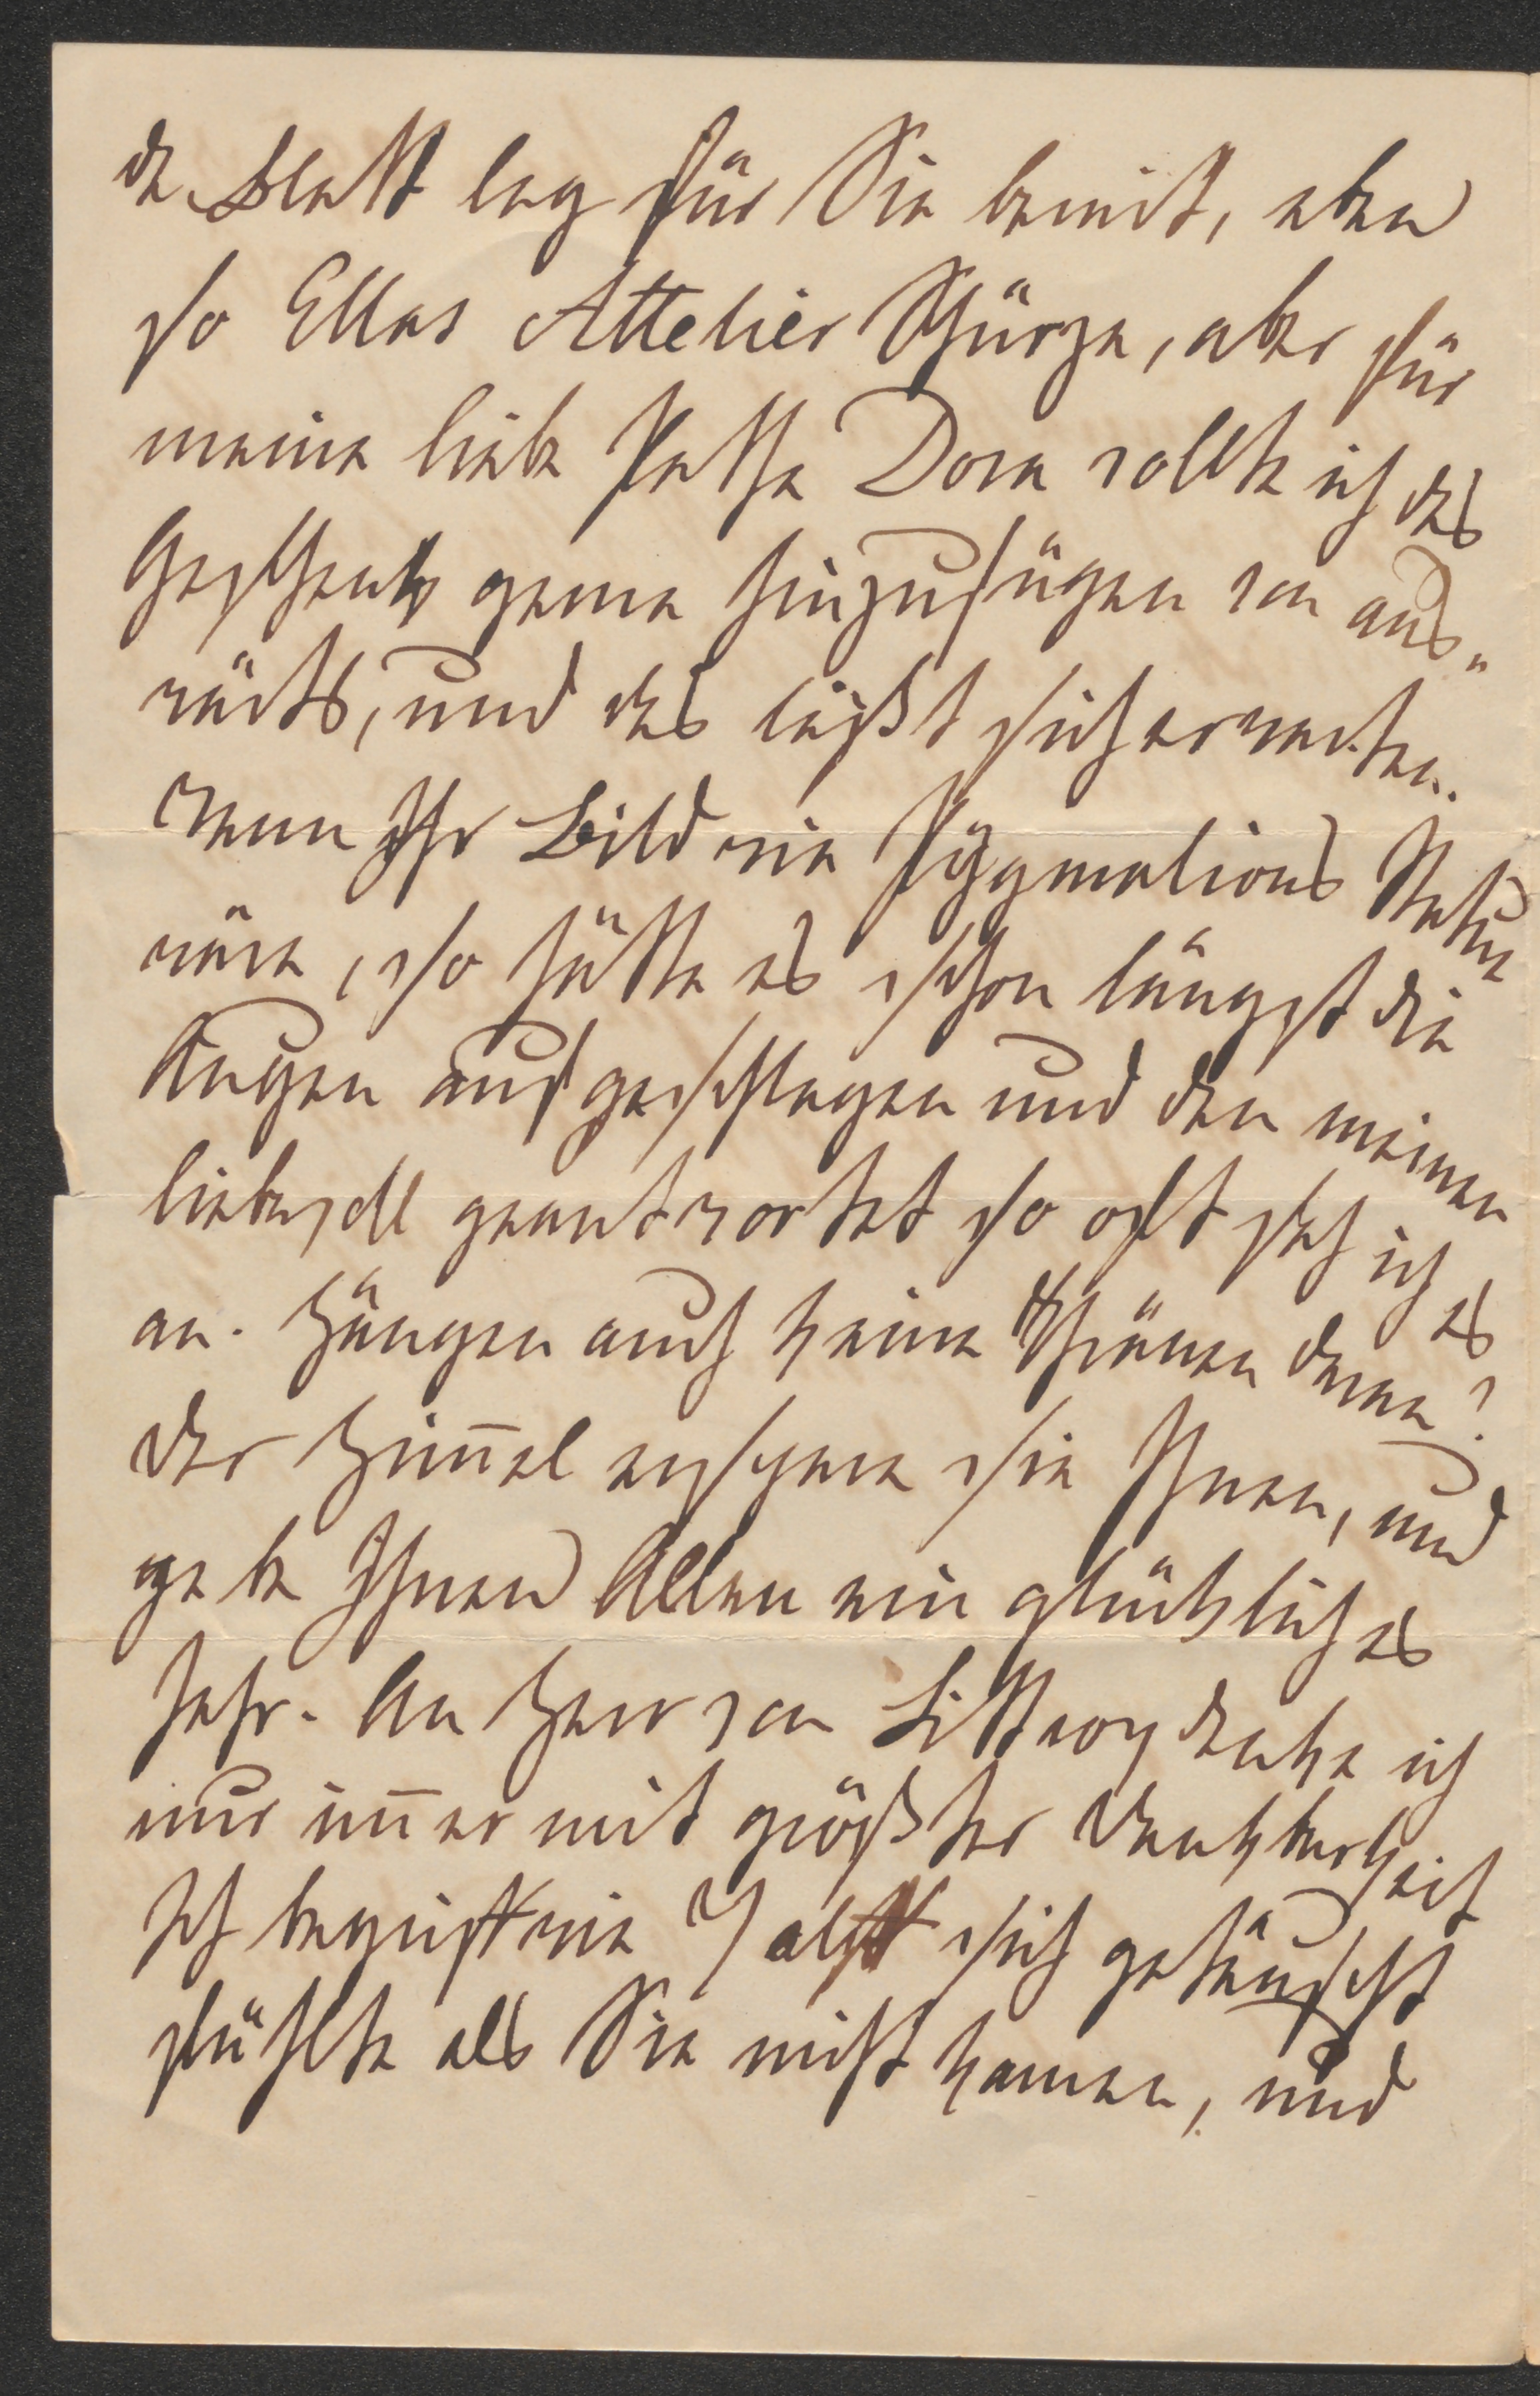 de Blatt lag für Sie bereit, eben
so Ellas Attelier Schürze, aber für
meine liebe Pathe Dora wollte ich das
Geschenk gerne hinzufügen von aus-
wärts, und das läßt sich erwarten.
Wenn Ihr Bild wie Pÿgmalions Statue
wäre, so hätte es schon längst die
Augen aufgeschlagen und den meinen
liebevoll geantwortet so oft sah ich es
an. Hängen auch keine Thränen daran?
Der Him̅el erspare sie Ihnen, und
gebe Ihnen Allen ein glückliches
Jahr. An Herr von Littrow denke ich
nur im̅er mit größter Dankbarkeit
Ich begriff wie sich getäuscht
fühlte als Sie nicht kamen, und